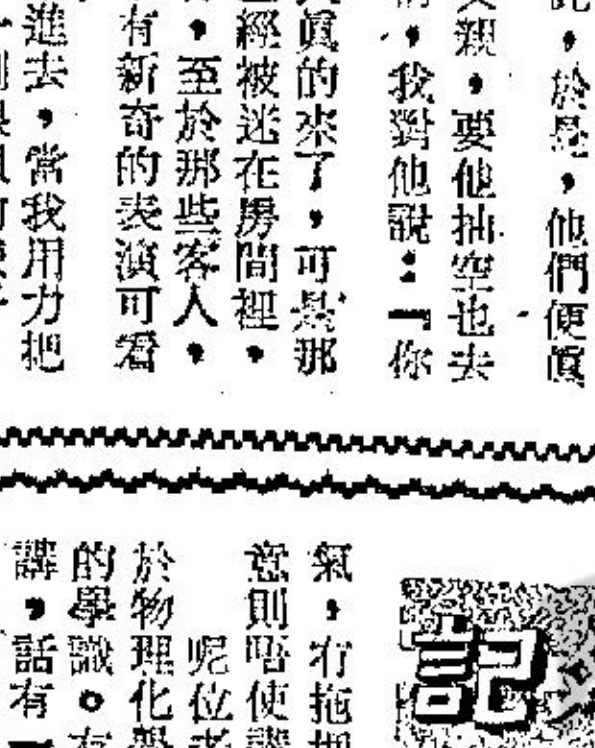 於是，他們便眞
親，要他抽空也去
，我對他說：『你
眞的來了，可是那
經被迷在房間裡，
，至於那些客人，
有新奇的表演可看
進去，當我用力把
記
氣，冇拖
意則唔使
呢位
於物理化學
的學識。有
講，話有